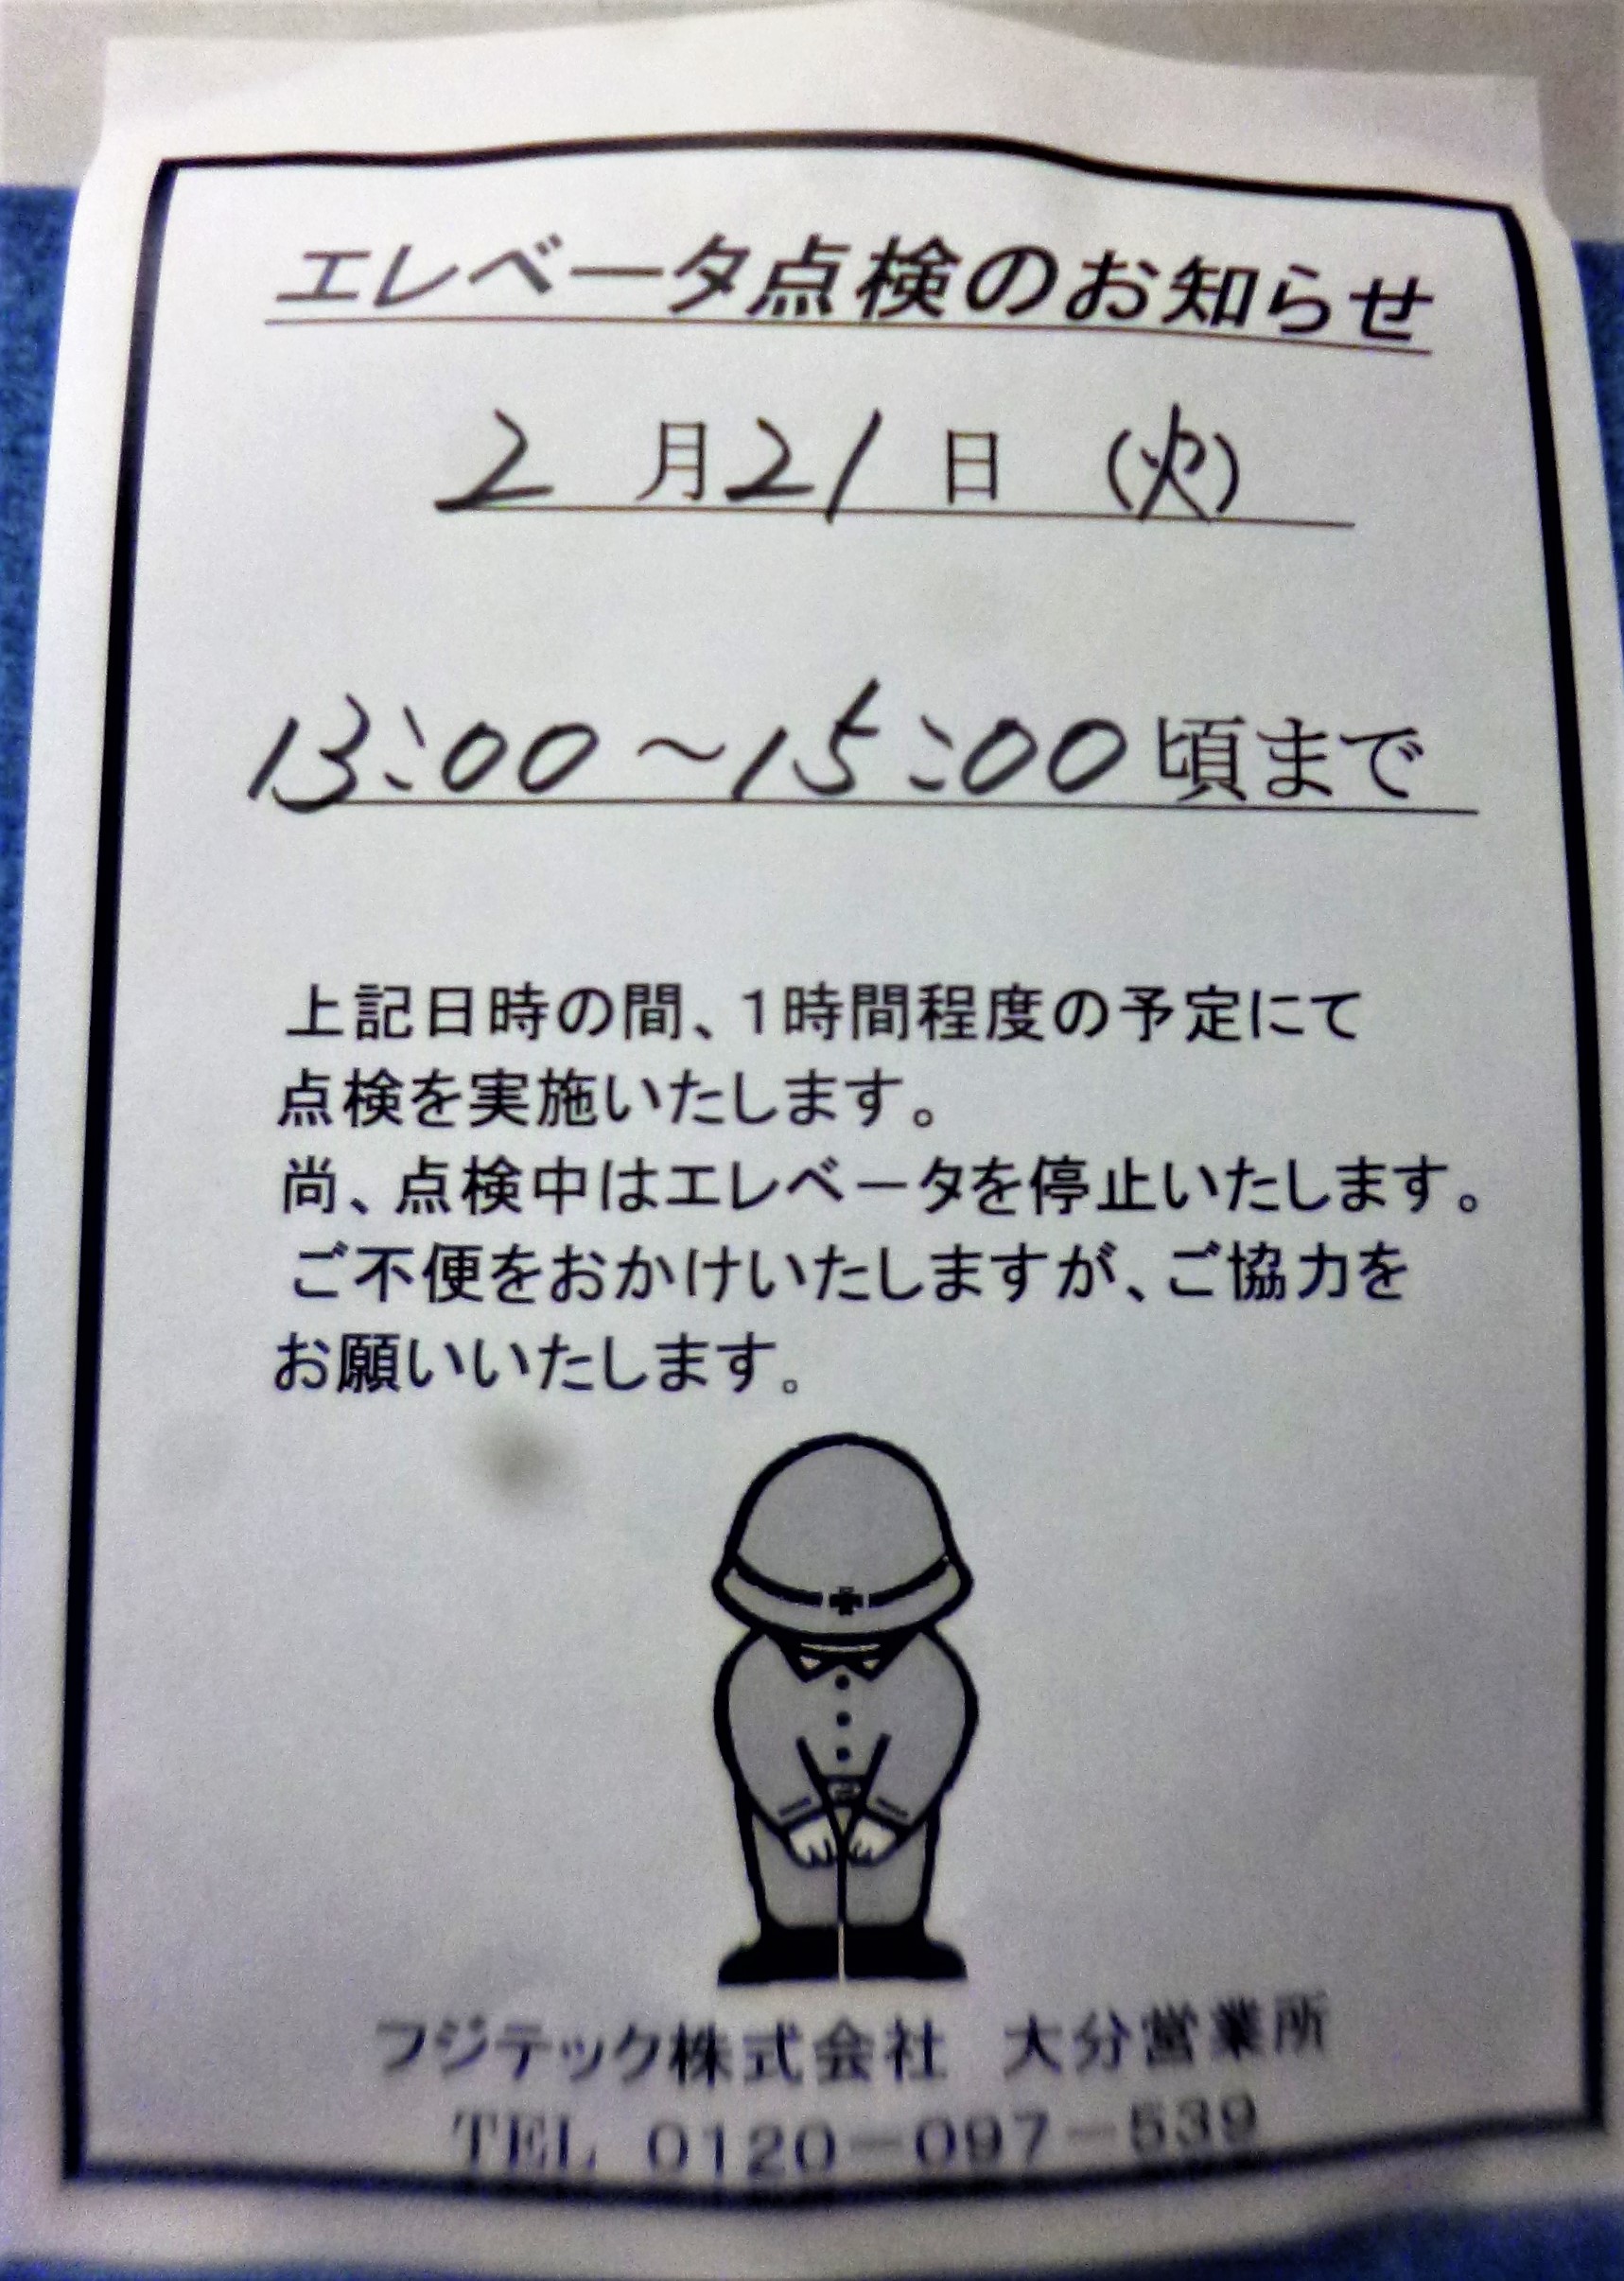 エレベータ点検のお知らせ
2月21日(火)
13:00~15:00頃まで
上記日時の間、1時間程度の予定にて
点検を実施いたします。
尚、点検中はエレベータを停止いたします。
ご不便をおかけいたしますが、ご協力を
お願いいたします。
フジテック株式会社 大分営業所
TEL 0120-097-539